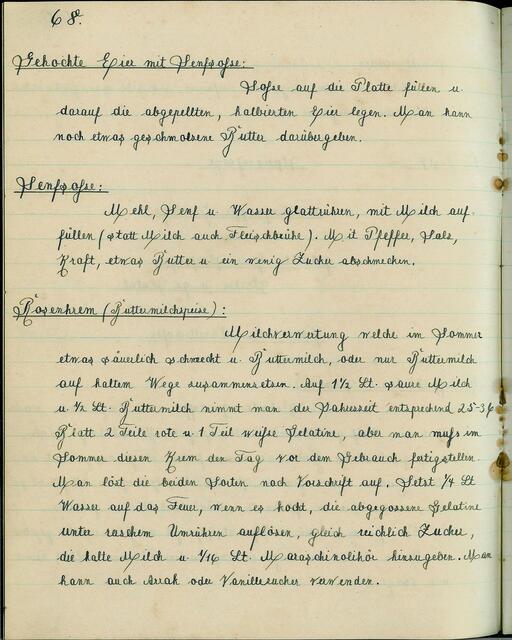 68.
Gekochte Eier mit Senfsoße:
Soße auf die Platte füllen u.
darauf die abgepellten, halbierten Eier legen. Man kann
noch etwas geschmolzene Butter darübergeben.
Senfsoße:
Mehl, Senf u. Wasser glattrühren, mit Milch auf-
füllen (statt Milch auch Fleischbrühe). Mit Pfeffer, Salz,
Kraft, etwas Butter u. ein wenig Zucker abschmecken.
Rosenkrem (Buttermilchspeise):
Milchverwertung welche im Sommer
etwas säuerlich schmeckt u. Buttermilch, oder nur Buttermilch
auf kaltem Wege zusammensetzen. Auf 1 1/2 Lt. saure Milch
u. 1/2 Lt. Buttermilch nimmt man der Jahreszeit entsprechend 25-34
Blatt 2 Teile rote u. 1 Teil weiße Gelatine, aber man muß im
Sommer diesen Krem den Tag vor dem Gebrauch fertigstellen.
Man löst die beiden Sorten nach Vorschrift auf. Setzt 1/4 Lt
Wasser auf das Feuer, wenn es kocht, die abgegossene Gelatine
unter raschem Umrühren auflösen, gleich reichlich Zucker,
die kalte Milch u. 1/16 Lt. Maraschinolikör hinzugeben. Man
kann auch Arrak oder Vanillezucker verwenden.